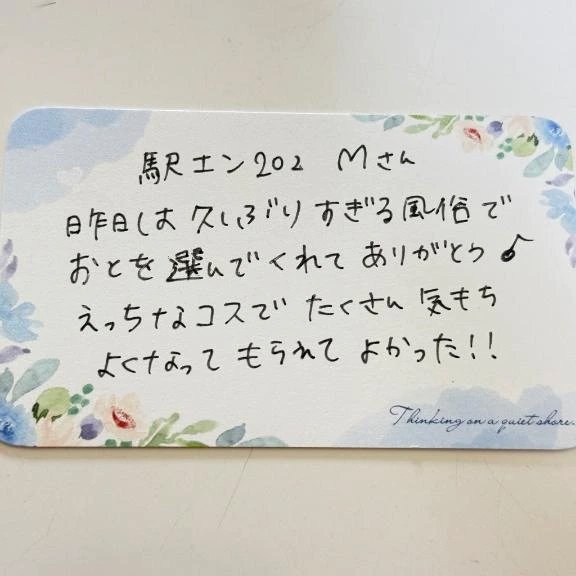 駅チン202 Mさん
昨日は久しぶりすぎる風俗で
おとを選んでくれてありがとう♪
えっちなコスでたくさん気もち
よくなってもられてよかった!!
Thinking on a quiet shore.